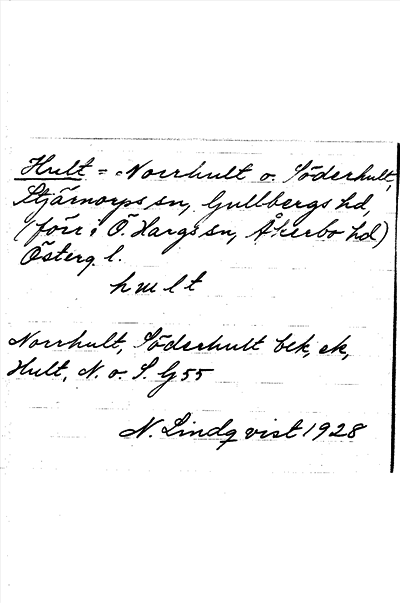 Hult = Norrhult o. Söderhult,
Stjärnorps sn, Gullbergs hd,
(förr i Ö. Hargs sn, Åkerbo hd)
Österg. l.
hult
Norrhult, Söderhult bek, ek,
Hult, N. o. S. G 55
N. Lindqvist 1928